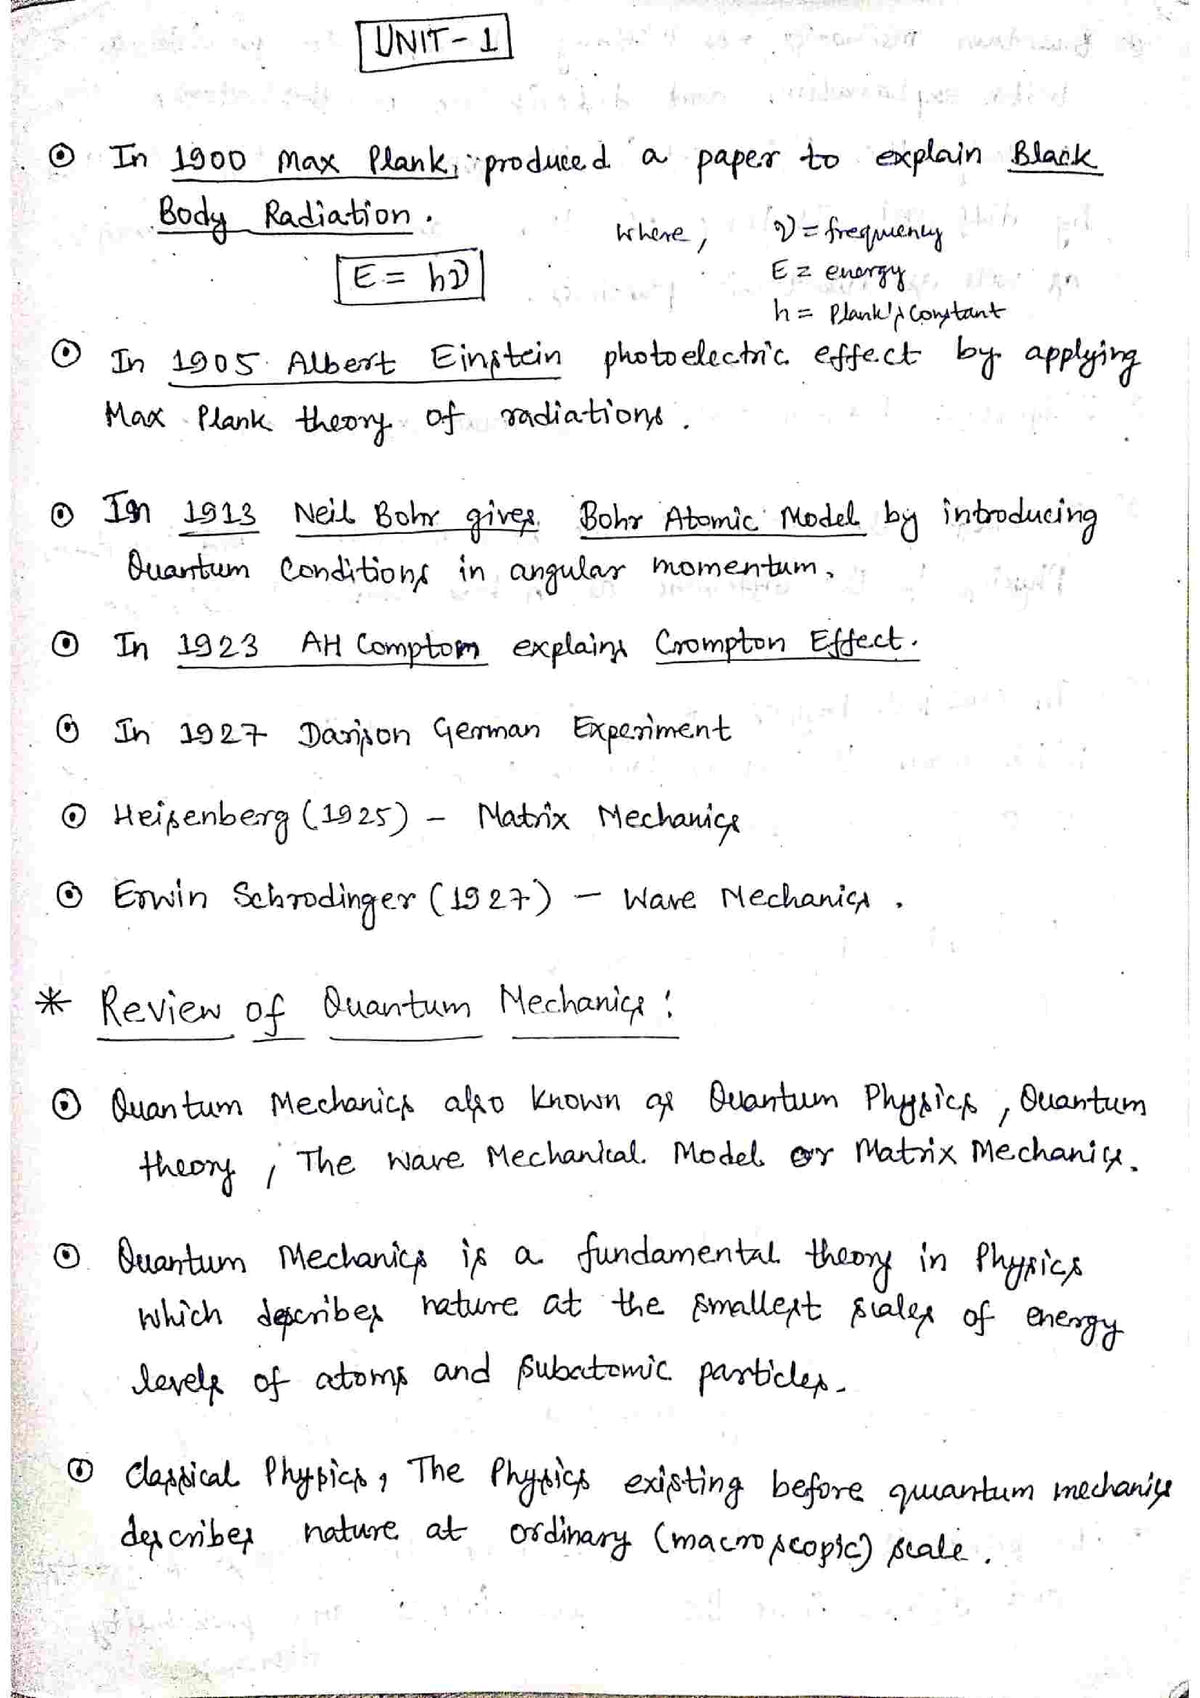 UNIT-1
In 1900 Max Plank, produced a paper to explain Black
Body Radiation.
where, ν = frequency
E = hν
E = energy
h = Plank's Constant
In 1905 Albert Einstein photoelectric effect by applying
Max Plank theory of radiations.
In 1913 Neil Bohr gives Bohr Atomic Model by introducing
Quantum Conditions in angular momentum.
In 1923 AH Comptom explains Crompton Effect.
In 1927 Davison German Experiment
Heisenberg (1925) - Matrix Mechanics
Erwin Schrodinger (1927) - Wave Mechanics.
* Review of Quantum Mechanics:
Quantum Mechanics also known as Quantum Physics, Quantum
theory, The Wave Mechanical Model or Matrix Mechanics.
Quantum Mechanics is a fundamental theory in Physics
which describes nature at the smallest scales of energy
levels of atoms and subatomic particles.
Classical Physics, The Physics existing before quantum mechanics
describes nature at ordinary (macroscopic) scale.